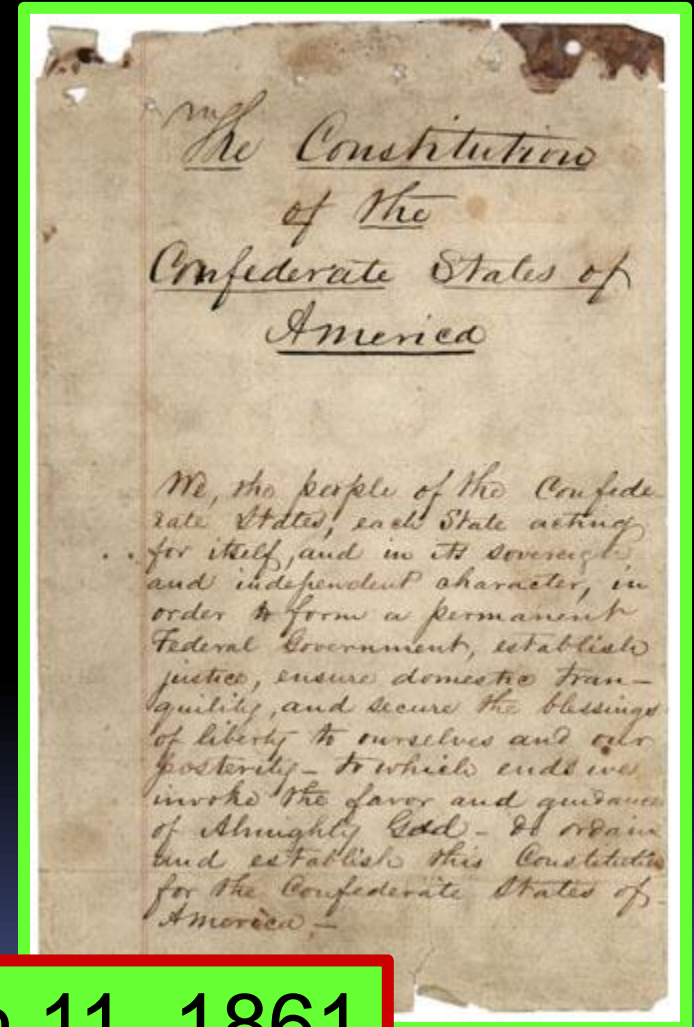 The Constitution
of the
Confederate States of
America
We, the people of the Confede-
rate States, each State acting
for itself, and in its sovereign
and independent character, in
order to form a permanent
Federal Government, establish
justice, ensure domestic tran-
quility, and secure the blessings
of liberty to ourselves and our
posterity - to which ends we
invoke the favor and guidance
of Almighty God - do ordain
and establish this Constitution
for the Confederate States of
America -
11, 1861